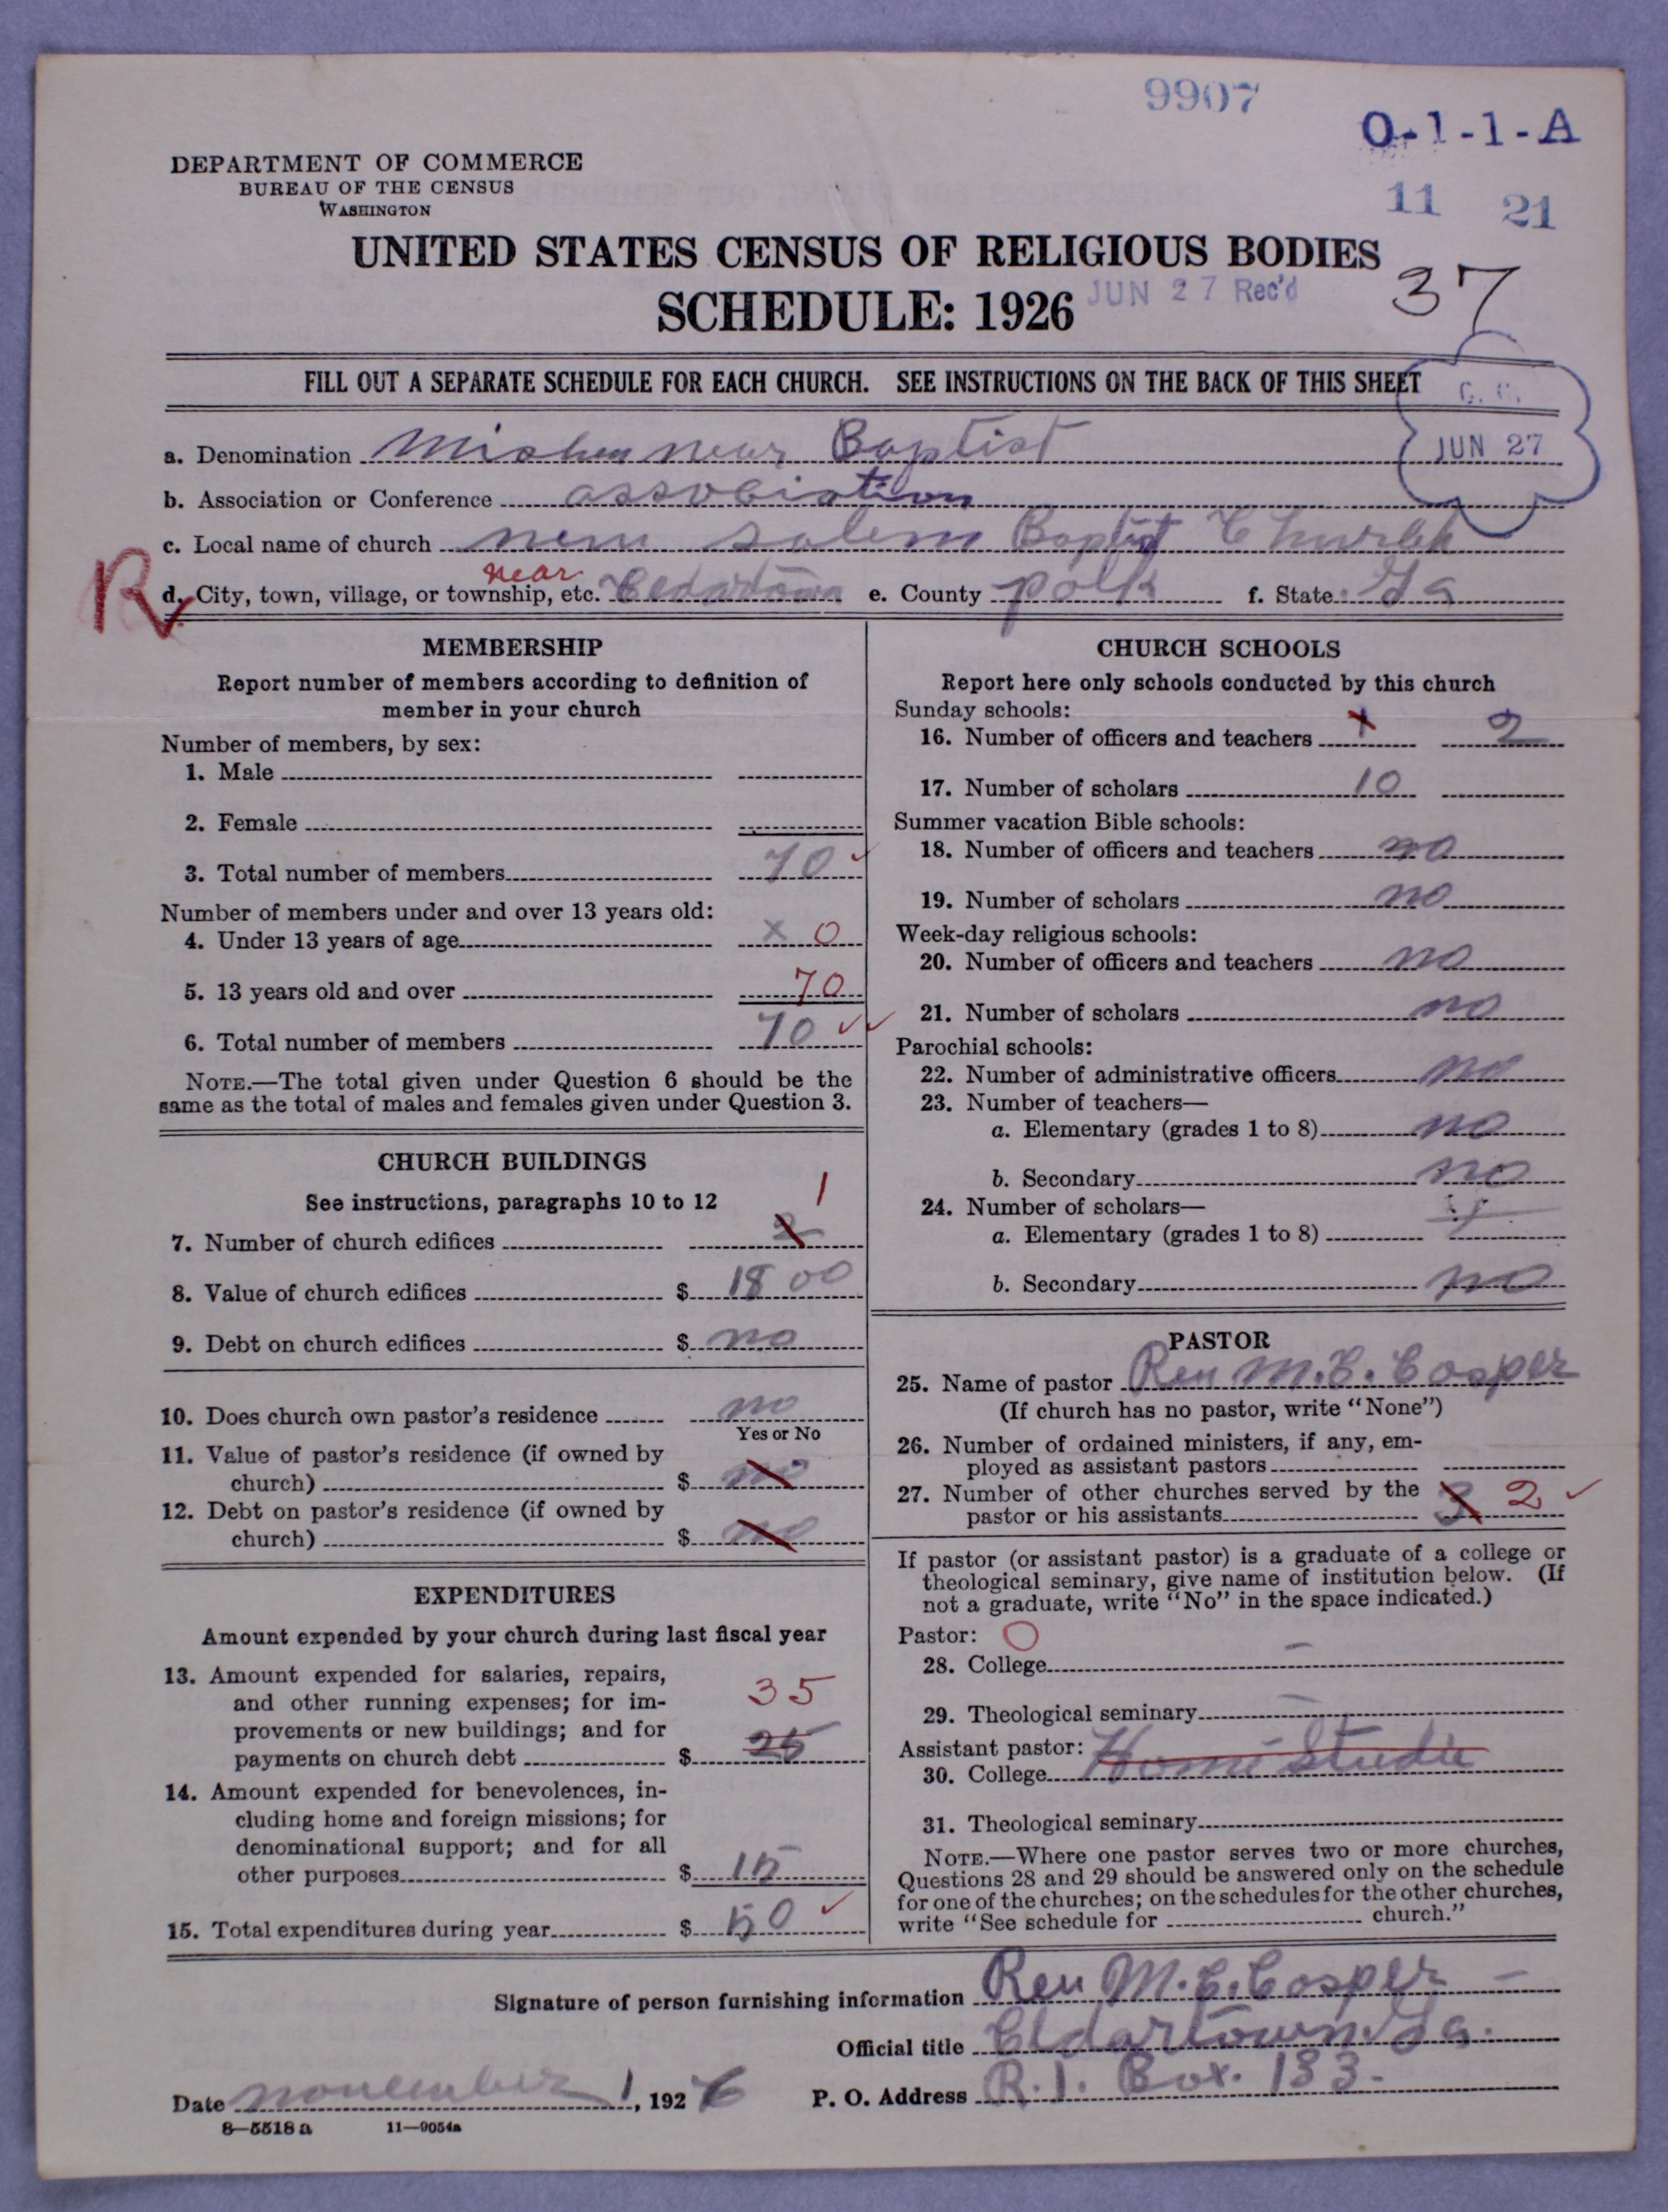 9907
O-1-1-A
11 21
DEPARTMENT OF COMMERCE
BUREAU OF THE CENSUS
WASHINGTON
UNITED STATES CENSUS OF RELIGIOUS BODIES
SCHEDULE: 1926
JUN 27 Rec'd
37
FILL OUT A SEPARATE SCHEDULE FOR EACH CHURCH. SEE INSTRUCTIONS ON THE BACK OF THIS SHEET
JUN 27
a. Denomination Baptist
b. Association or Conference association
c. Local name of church new salem Baptist Church
R
near
d. City, town, village, or township, etc. Cedartown e. County polk f. State Ga
MEMBERSHIP
Report number of members according to definition of
member in your church
Number of members, by sex:
1. Male
2. Female
3. Total number of members 70
Number of members under and over 13 years old:
4. Under 13 years of age x 0
5. 13 years old and over 70
6. Total number of members 70
NOTE.—The total given under Question 6 should be the
same as the total of males and females given under Question 3.
CHURCH BUILDINGS
See instructions, paragraphs 10 to 12
1
7. Number of church edifices 2
8. Value of church edifices $ 1800
9. Debt on church edifices $ no
10. Does church own pastor's residence no
Yes or No
11. Value of pastor's residence (if owned by
church) $ no
12. Debt on pastor's residence (if owned by
church) $ no
EXPENDITURES
Amount expended by your church during last fiscal year
13. Amount expended for salaries, repairs,
and other running expenses; for im-
35
provements or new buildings; and for
payments on church debt $ 25
14. Amount expended for benevolences, in-
cluding home and foreign missions; for
denominational support; and for all
other purposes $ 15
15. Total expenditures during year $ 50
CHURCH SCHOOLS
Report here only schools conducted by this church
Sunday schools:
16. Number of officers and teachers 2
17. Number of scholars 10
Summer vacation Bible schools:
18. Number of officers and teachers no
19. Number of scholars no
Week-day religious schools:
20. Number of officers and teachers no
21. Number of scholars no
Parochial schools:
22. Number of administrative officers no
23. Number of teachers—
a. Elementary (grades 1 to 8) no
b. Secondary no
24. Number of scholars—
a. Elementary (grades 1 to 8)
b. Secondary no
PASTOR
25. Name of pastor Rev M.C. Cosper
(If church has no pastor, write "None")
26. Number of ordained ministers, if any, em-
ployed as assistant pastors
27. Number of other churches served by the
pastor or his assistants 3 2
If pastor (or assistant pastor) is a graduate of a college or
theological seminary, give name of institution below. (If
not a graduate, write "No" in the space indicated.)
Pastor: O
28. College
29. Theological seminary
Assistant pastor:
30. College Home Studie
31. Theological seminary
NOTE.—Where one pastor serves two or more churches,
Questions 28 and 29 should be answered only on the schedule
for one of the churches; on the schedules for the other churches,
write "See schedule for church."
Signature of person furnishing information Rev M.C. Cosper
Official title Cedartown. Ga.
Date november 1, 1926 P. O. Address R.1. Box. 133.
8—5518 a 11—9054a